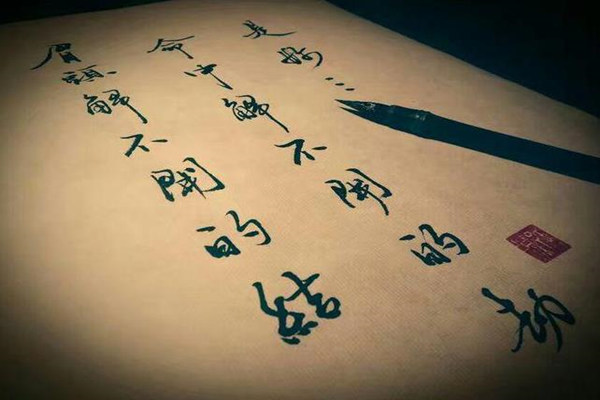 眉頭解不開的結
命中解不開的劫
是妳...